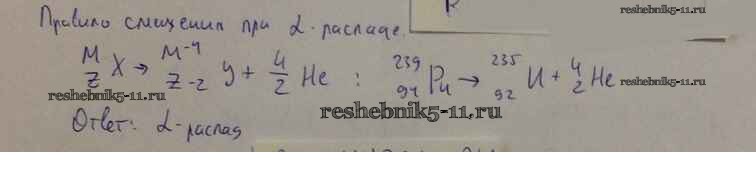 Правило смещения при α-распаде.
M Z X → M-4 Z-2 Y + 4 2 He : 239 94 Pu → 235 92 U + 4 2 He
Ответ: α-распад
reshebnik5-11.ru
reshebnik5-11.ru
reshebnik5-11.ru
reshebnik5-11.ru